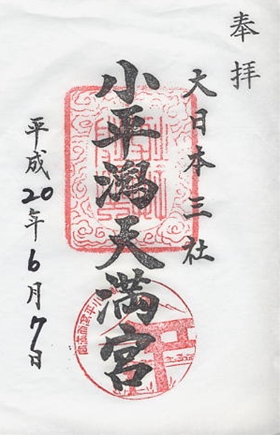 奉拝
大日本三社
小平潟天満宮
平成20年6月7日